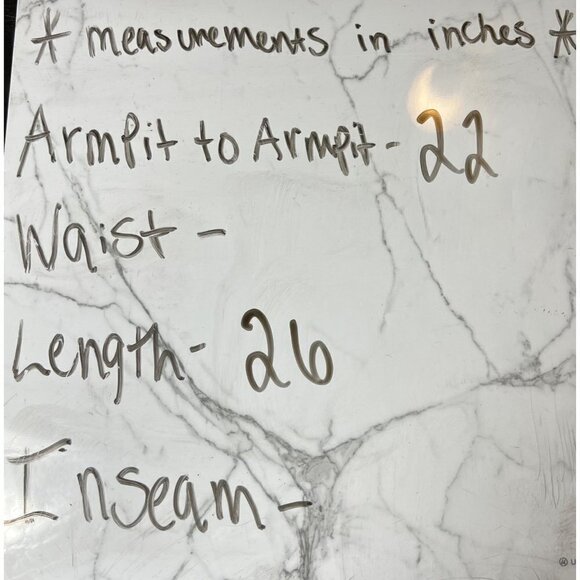 * measurements in inches *
Armpit to Armpit - 22
Waist -
Length - 26
Inseam -